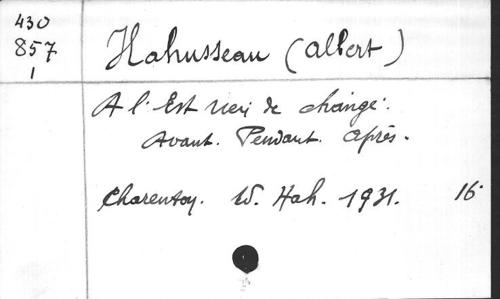 430
857
1
Hahusseau (Albert)
A l'Est rien de changé.
Avant. Pendant. Après.
Charenton. W. Hah. 1931. 16°